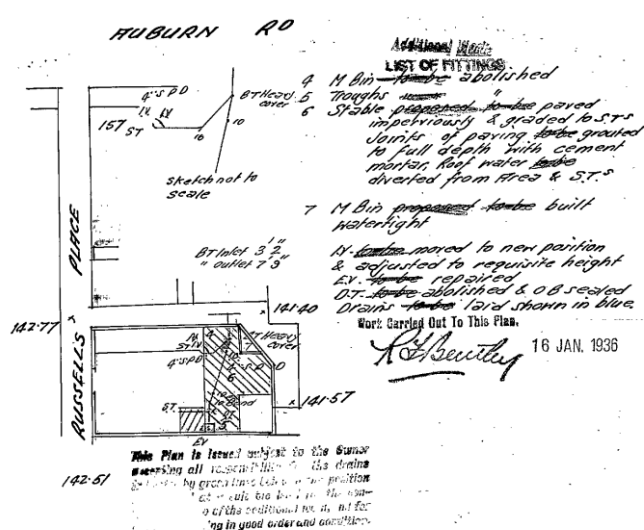 AUBURN RD
Additional Work
LIST OF FITTINGS
4 M Bin to be abolished
5 Troughs "
6 Stable proposed to be paved
imperviously & graded to S.T's
Joints of paving to be grouted
to full depth with cement
mortar, Roof water to be
diverted from Area & S.T.s
7 M Bin proposed to be built
watertight
I.V. to be moved to new position
& adjusted to requisite height
E.V. to be repaired
D.T. to be abolished & OB sealed
Drains to be laid shown in blue
Work Carried Out To This Plan.
R J Bentley
16 JAN. 1936
4" S P D
I.V.
157
ST
10
10
BT Heavy
cover
Sketch not to
scale
BT Inlet 3' 2"
" outlet 7' 9"
RUSSELLS PLACE
142.77
141.40
141.57
142.51
IV
ST
4" S P D
BT Heavy
cover
S.T.
EV
This Plan is issued subject to the Owner
accepting all responsibility the drains
by green lines position
of the additional
ing in good order and condition.